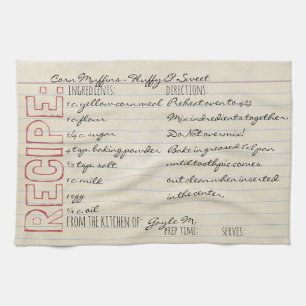 Corn Muffins - Fluffy & Sweet
RECIPE:
INGREDIENTS:
1 c. yellow corn meal
1 c. flour
1/4 c. sugar
4 tsp. baking powder
1/2 tsp. salt
1 c. milk
1 egg
1/4 c. oil
DIRECTIONS:
Preheat oven to 425
Mix ingredients together.
Do Not overmix!
Bake in greased pan
until toothpic comes
out clean when inserted
in the center.
FROM THE KITCHEN OF: Gayle M.
PREP TIME: SERVES: